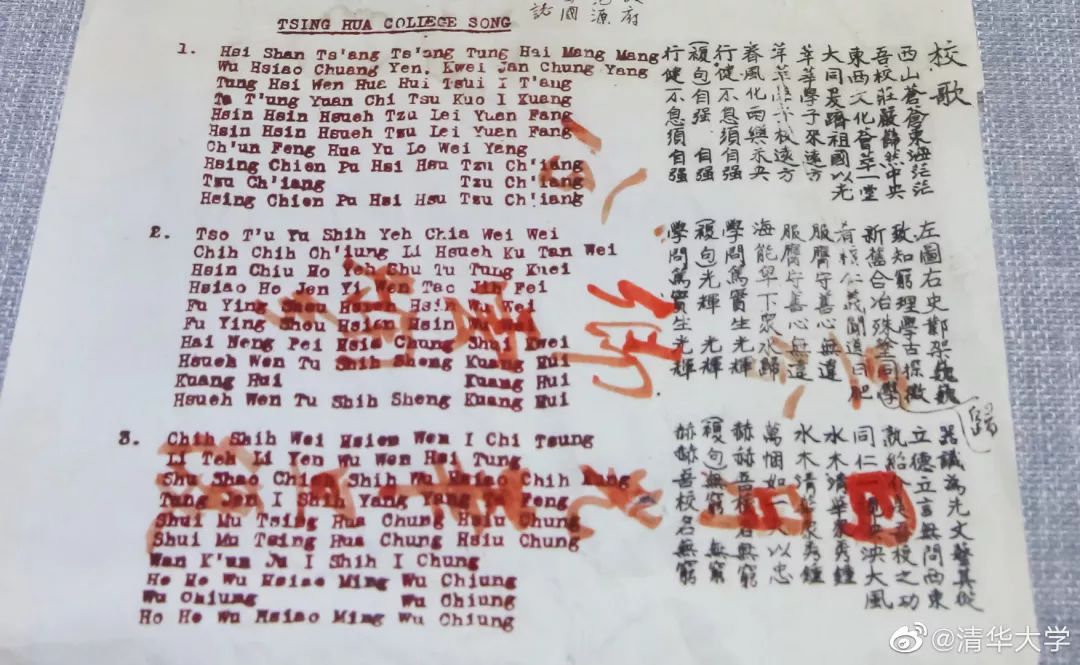 誌
國
源
府
TSING HUA COLLEGE SONG
1. Hsi Shan Ts'ang Ts'ang Tung Hai Mang Mang
Wu Hsiao Chuang Yen, Kwei Jan Chung Yang
Tung Hsi Wen Hua Hui Tsui I T'ang
Ta T'ung Yuan Chi Tsu Kuo I Kuang
Hsin Hsin Hsueh Tzu Lei Yuan Fang
Hsin Hsin Hsueh Tzu Lei Yuan Fang
Ch'un Feng Hua Yu Lo Wei Yang
Hsing Chien Pu Hsi Hsu Tzu Ch'iang
Tzu Ch'iang Tzu Ch'iang
Hsing Chien Pu Hsi Hsu Tzu Ch'iang
2. Tso T'u Yu Shih Yeh Chia Wei Wei
Chih Chih Ch'iung Li Hsueh Ku Tan Wei
Hsin Chiu Ho Yeh Shu Tu Tung Kuei
Hsiao Ho Jen Yi Wen Tao Jih Fei
Fu Ying Shou Hsien Hsin Wu Wei
Fu Ying Shou Hsien Hsin Wu Wei
Hai Neng Pei Hsia Chung Shui Kwei
Hsueh Wen Tu Shih Sheng Kuang Hui
Kuang Hui Kuang Hui
Hsueh Wen Tu Shih Sheng Kuang Hui
3. Chih Shih Wei Hsien Wen I Chi Tsung
Li Teh Li Yen Wu Wen Hsi Tung
Shu Shao Chieh Shih Wu Hsiao Chih Kung
Tung Jen I Shih Yang Yang Ta Feng
Shui Mu Tsing Hua Chung Hsiu Chung
Shui Mu Tsing Hua Chung Hsiu Chung
Wan K'un Ju I Shih I Chung
Ho Ho Wu Hsiao Ming Wu Chiung
Wu Chiung Wu Chiung
Ho Ho Wu Hsiao Ming Wu Chiung
校歌
西山蒼蒼東海茫茫
吾校莊嚴巋然中央
東西文化薈萃一堂
大同爰躋祖國以光
莘莘學子來遠方
莘莘學子遠方
春風化雨樂未央
行健不息須自强
(複句自强 自强
行健不息須自强
左圖右史鄴架巍巍
致知窮理學古探微
新舊合冶殊途同學
歸
肴核仁義聞道日肥
服膺守善心無違
服膺守善心無違
海能卑下衆水歸
學問篤實生光輝
(複句光輝 光輝
學問篤實生光輝
器識為先文藝其從
立德立言無問西東
孰紹介是吾校之功
同仁一視泱泱大風
水木清華衆秀鍾
水木清華衆秀鍾
萬悃如一矢以忠
赫赫吾校名無窮
(複句無窮 無窮
赫赫吾校名無窮
@清华大学